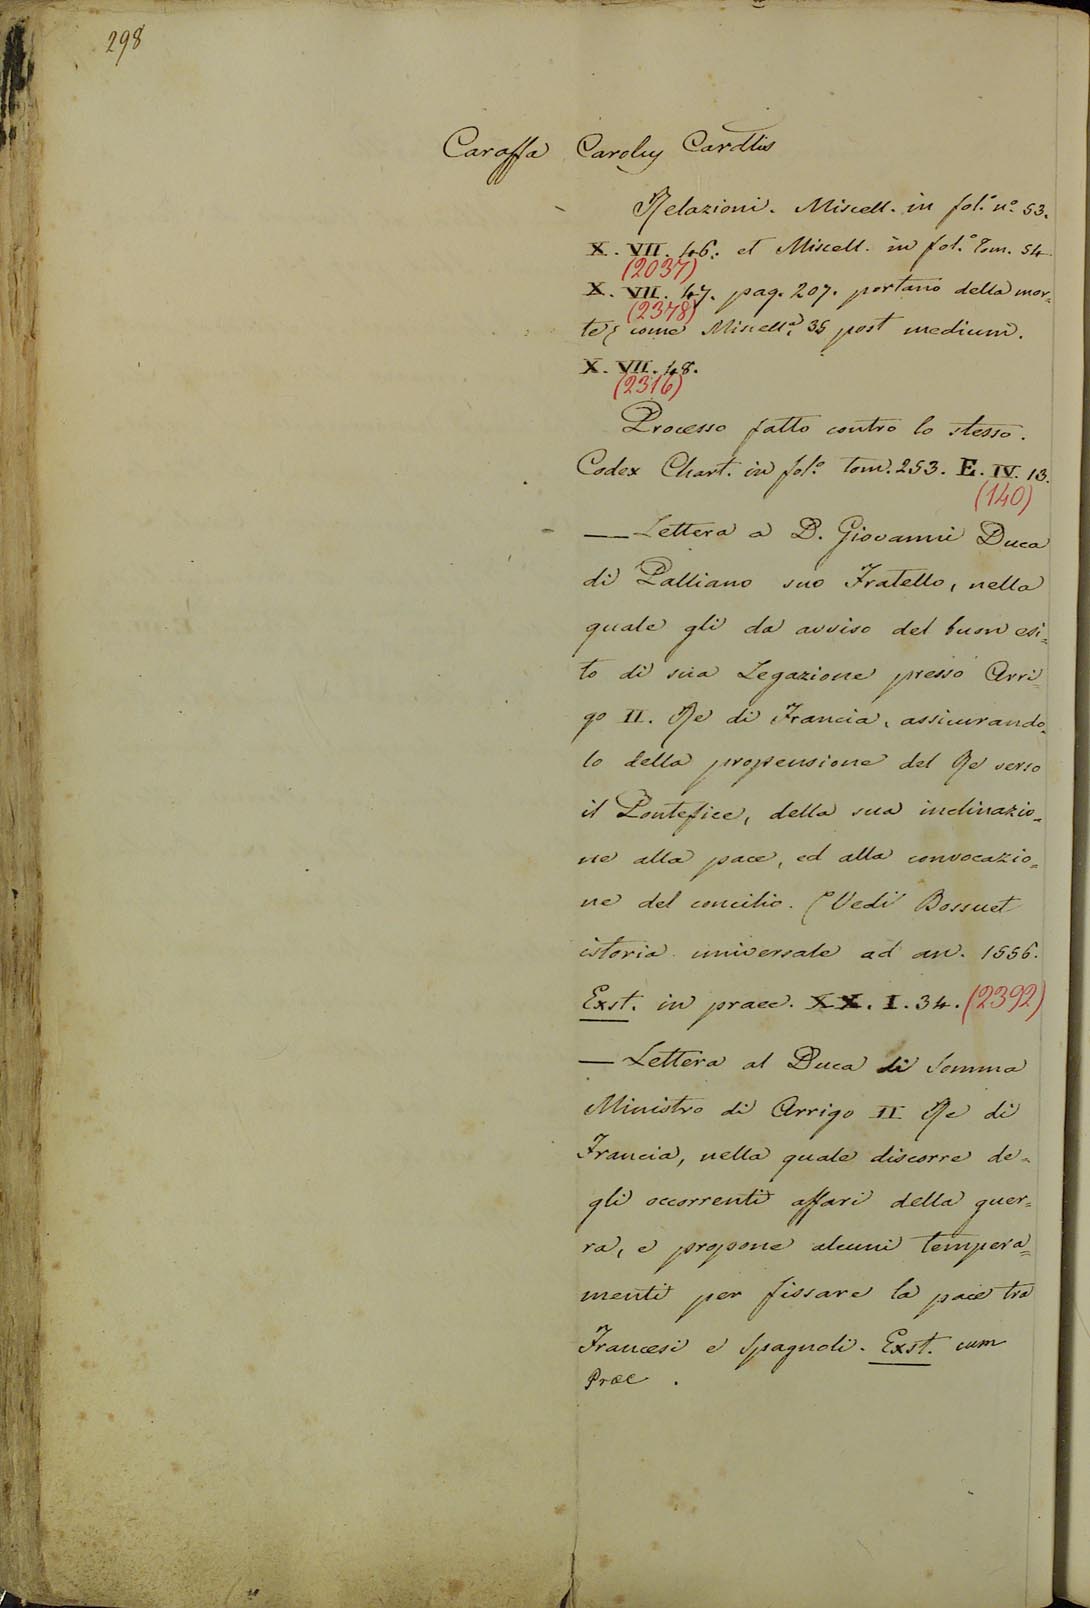 298
Caraffa Carolus Cardlis
Relazioni. Miscell. in fol.º nº. 53.
X. VII. 46. et Miscell. in fol.º Tom. 54
(2037)
X. VII. 47. pag. 207. portano della mor=
(2378)
te, come Miscell.ª 35 post medium.
X. VII. 48.
(2316)
Processo fatto contro lo stesso.
Codex Chart. in fol.º tom. 253. E. IV. 13.
(140)
— Lettera a D. Giovanni Duca
di Palliano suo Fratello, nella
quale gli da avviso del buon esi=
to di sua Legazione presso Arri=
go II. Re di Francia, assicurando=
lo della propensione del Re verso
il Pontefice, della sua inclinazio=
ne alla pace, ed alla convocazio=
ne del concilio. (Vedi Bossuet
istoria universale ad an. 1556.
Exst. in praec. XX. I. 34. (2392)
— Lettera al Duca di Somma
Ministro di Arrigo II Re di
Francia, nella quale discorre de=
gli occorrenti affari della guer=
ra, e propone alcuni tempera=
menti per fissare la pace tra
Francesi e Spagnoli. Exst. cum
Praec.